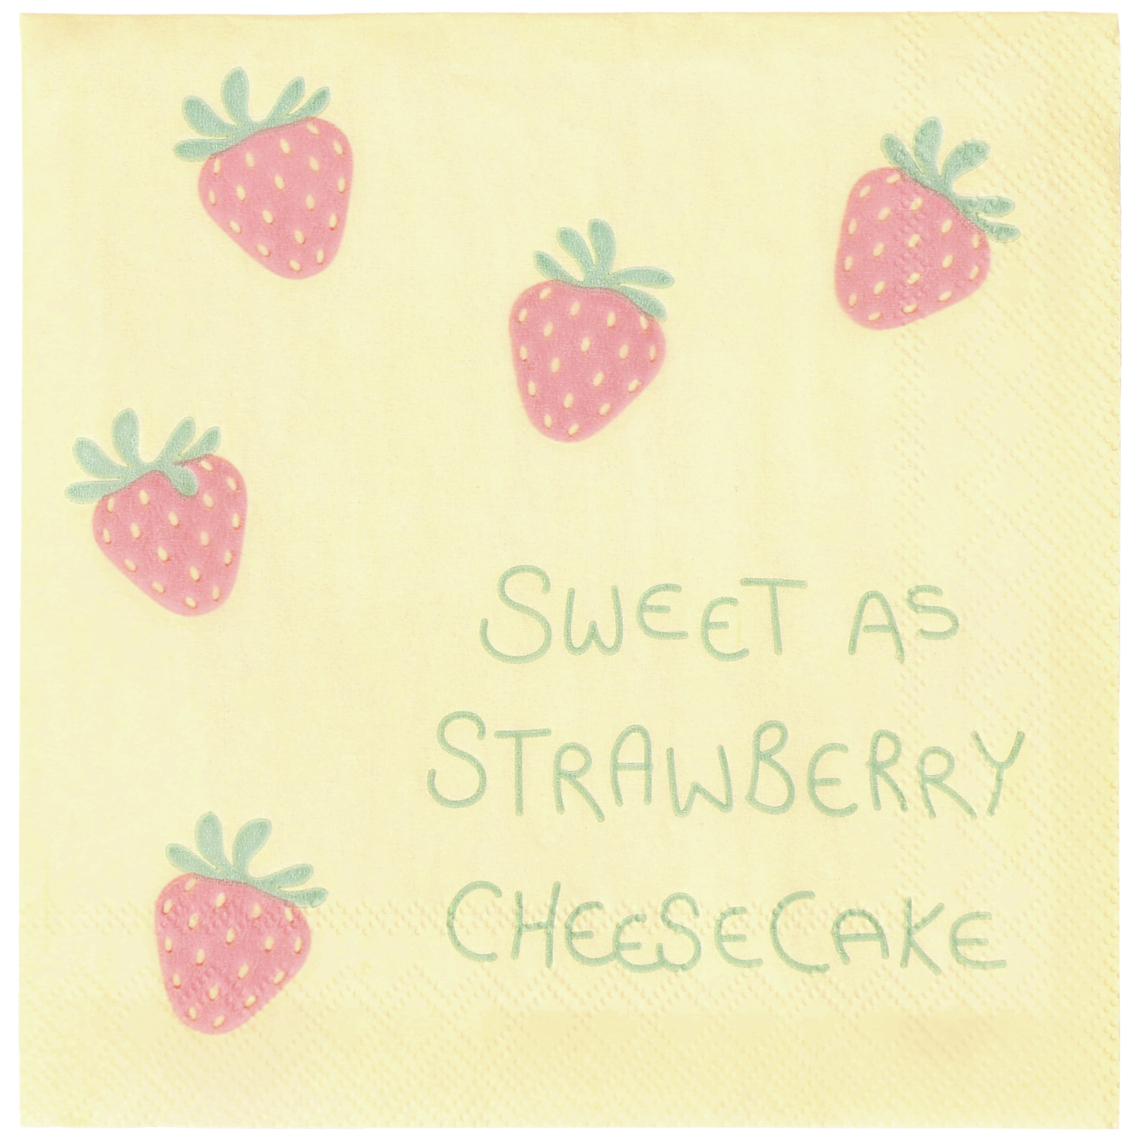 SWEET AS
STRAWBERRY
CHEESECAKE